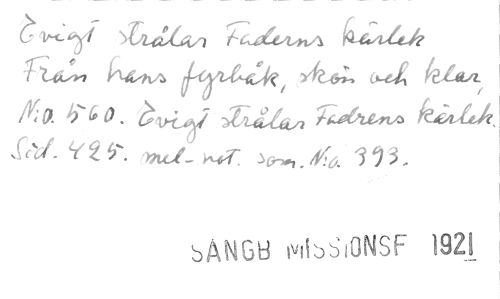 Evigt strålar Faderns kärlek
Från hans fyrbåk, skön och klar,
N:o. 560. Evigt strålar Fadrens kärlek.
Sid. 425. mel-not. som. N:o. 393.
SÅNGB MISSIONSF 1921